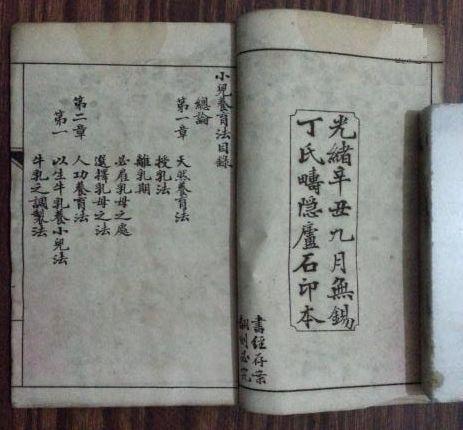 光緒辛丑九月無錫
丁氏疇隐廬石印本
書經存案
翻刻必究
小兒養育法目錄
總論
第一章 天然養育法
授乳法
離乳期
必雇乳母之處
選擇乳母之法
第二章 人功養育法
第一 以生牛乳養小兒法
牛乳之調製法